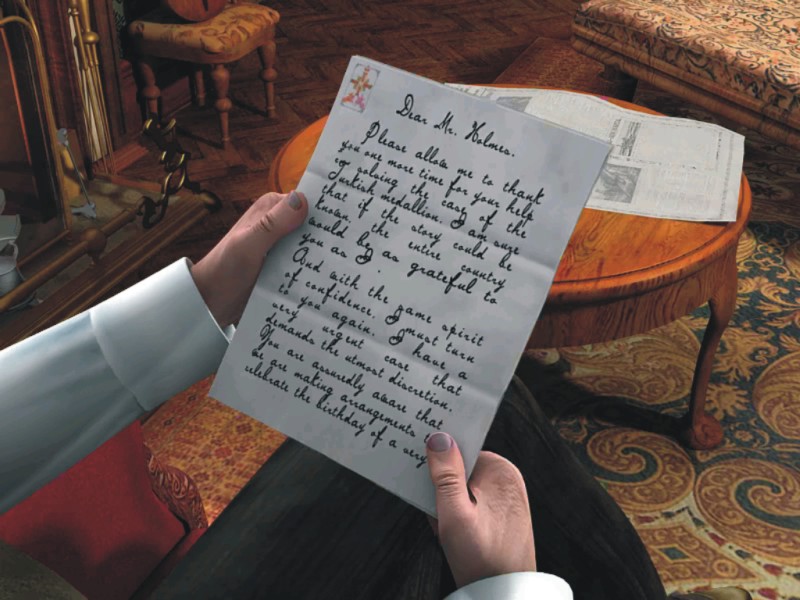 Dear Mr. Holmes.
Please allow me to thank
you one more time for your help
in solving the case of the
Turkish medallion. I am sure
that if the story could be
known, the entire country
would be as grateful to
you as I.
And with the same spirit
of confidence, I must turn
to you again. I have a
very urgent case that
demands the utmost discretion.
You are assuredly aware that
we are making arrangements
celebrate the birthday of a very